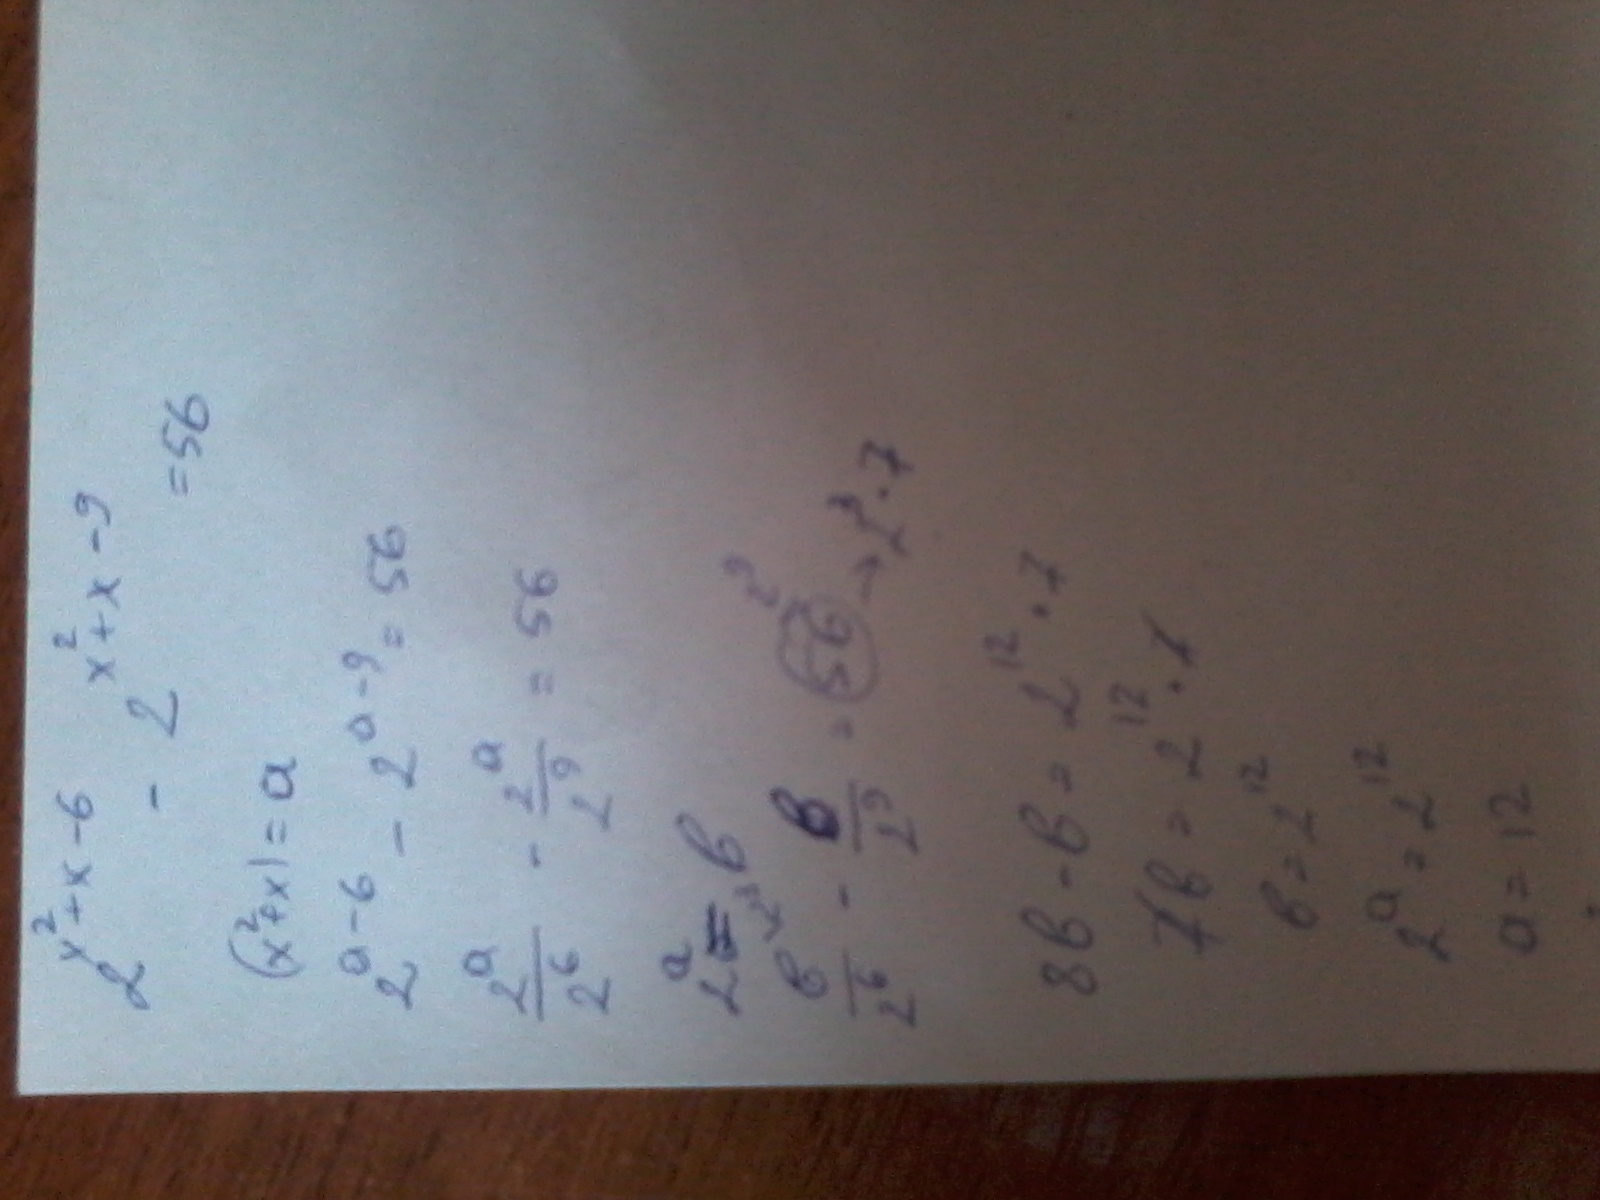 2^(x²+x-6) - 2^(x²+x-9) = 56
(x²+x) = a
2^(a-6) - 2^(a-9) = 56
2^a/2^6 - 2^a/2^9 = 56
2^a = b
b/2^6 - b/2^9 = 56 → 2³·7
8b - b = 2^12 · 7
7b = 2^12 · 7
b = 2^12
2^a = 2^12
a = 12